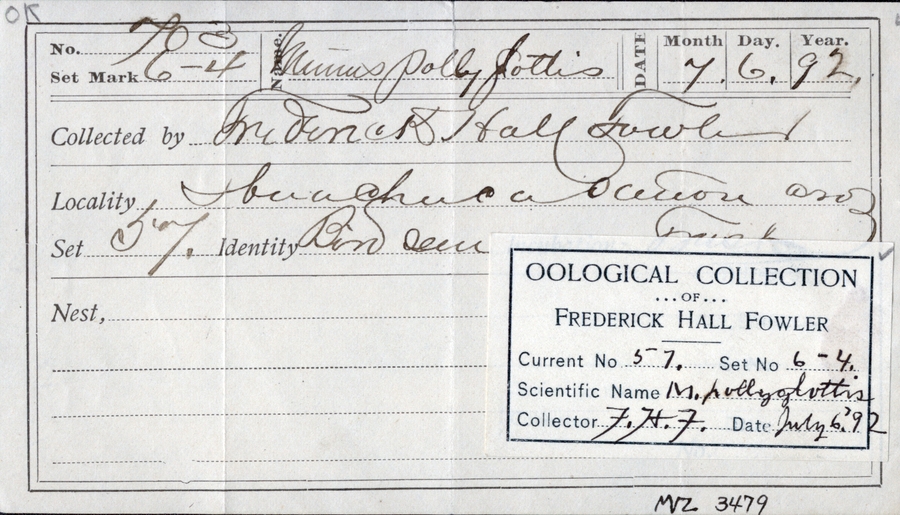 OK
No. 703 Name. Mimus pollyglottis DATE Month Day. Year.
Set Mark 6-4 7. 6. 92.
Collected by Frederick Hall Fowler
Locality Huachuca Canon Ariz
Set 57. Identity Bird seen
Nest,
OOLOGICAL COLLECTION
...OF...
FREDERICK HALL FOWLER
Current No 57. Set No 6-4.
Scientific Name M. pollyglottis
Collector F.H.F. Date July 6. '92
MVZ 3479